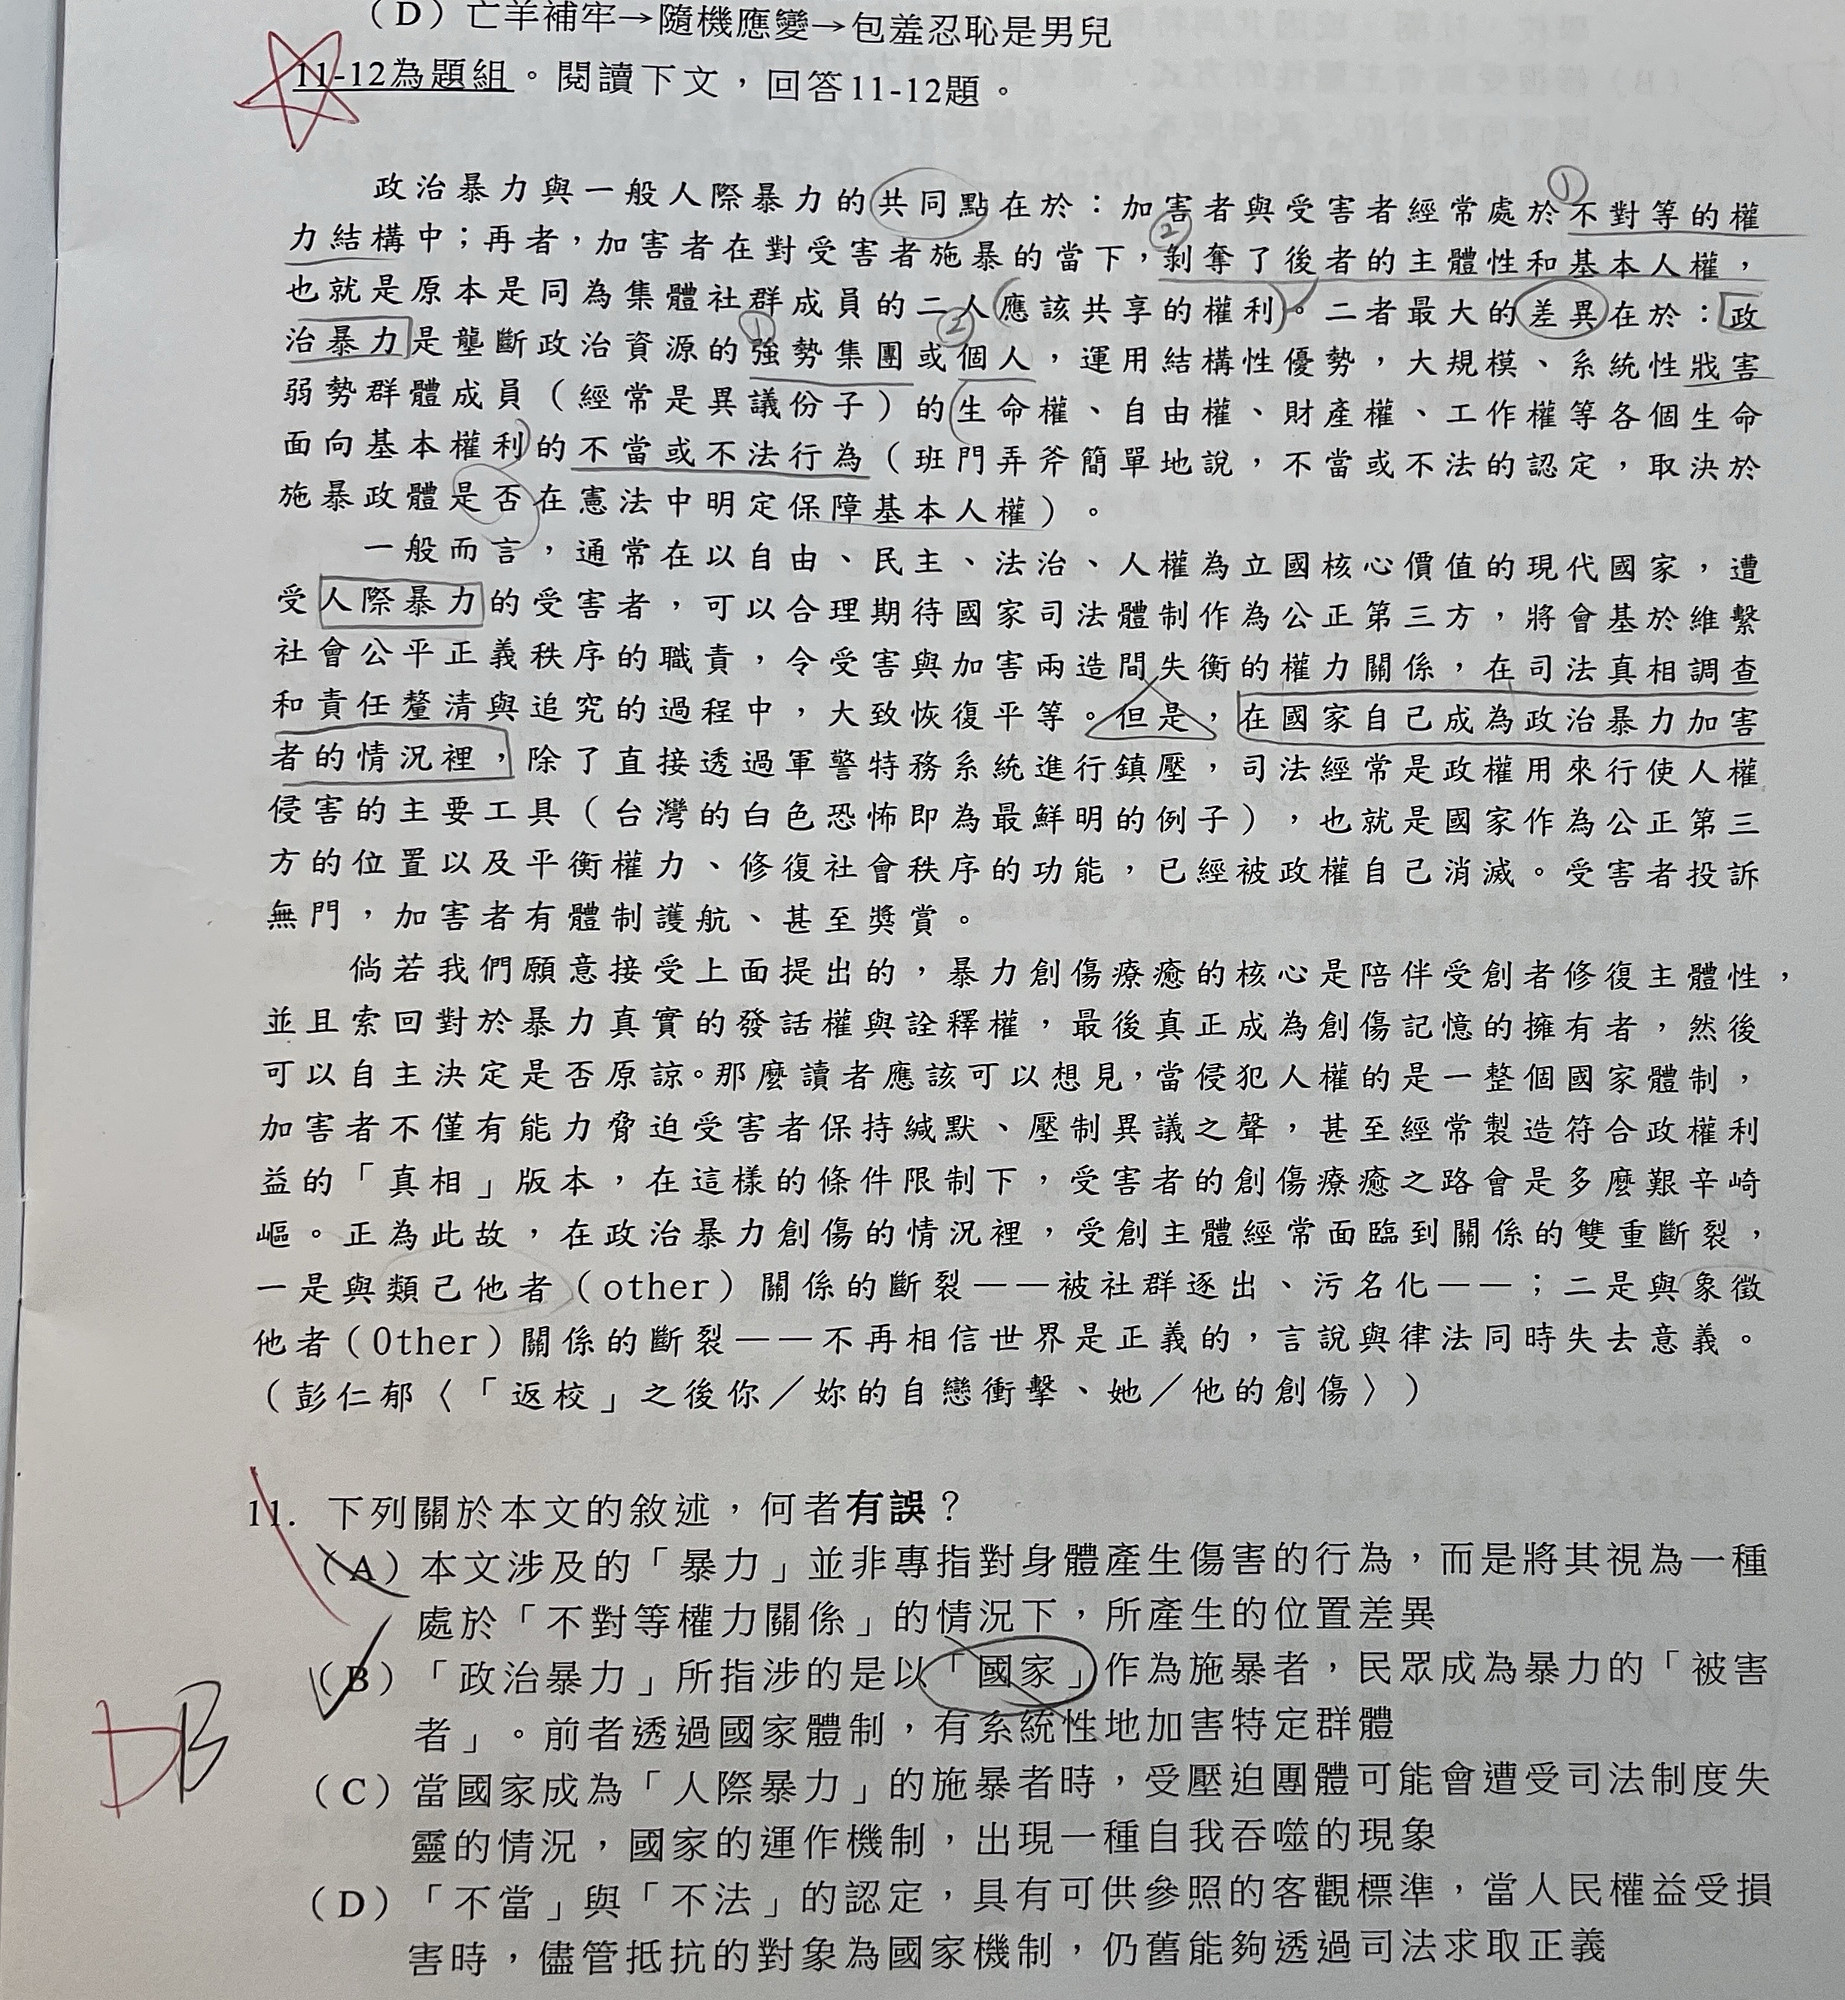 （D）亡羊補牢→隨機應變→包羞忍恥是男兒
11-12為題組。閱讀下文，回答11-12題。
政治暴力與一般人際暴力的共同點在於：加害者與受害者經常處於不對等的權
力結構中；再者，加害者在對受害者施暴的當下，剝奪了後者的主體性和基本人權，
也就是原本是同為集體社群成員的二人應該共享的權利。二者最大的差異在於：政
治暴力是壟斷政治資源的強勢集團或個人，運用結構性優勢，大規模、系統性戕害
弱勢群體成員（經常是異議份子）的生命權、自由權、財產權、工作權等各個生命
面向基本權利的不當或不法行為（班門弄斧簡單地說，不當或不法的認定，取決於
施暴政體是否在憲法中明定保障基本人權）。
一般而言，通常在以自由、民主、法治、人權為立國核心價值的現代國家，遭
受人際暴力的受害者，可以合理期待國家司法體制作為公正第三方，將會基於維繫
社會公平正義秩序的職責，令受害與加害兩造間失衡的權力關係，在司法真相調查
和責任釐清與追究的過程中，大致恢復平等。但是，在國家自己成為政治暴力加害
者的情況裡，除了直接透過軍警特務系統進行鎮壓，司法經常是政權用來行使人權
侵害的主要工具（台灣的白色恐怖即為最鮮明的例子），也就是國家作為公正第三
方的位置以及平衡權力、修復社會秩序的功能，已經被政權自己消滅。受害者投訴
無門，加害者有體制護航、甚至獎賞。
倘若我們願意接受上面提出的，暴力創傷療癒的核心是陪伴受創者修復主體性，
並且索回對於暴力真實的發話權與詮釋權，最後真正成為創傷記憶的擁有者，然後
可以自主決定是否原諒。那麼讀者應該可以想見，當侵犯人權的是一整個國家體制，
加害者不僅有能力脅迫受害者保持緘默、壓制異議之聲，甚至經常製造符合政權利
益的「真相」版本，在這樣的條件限制下，受害者的創傷療癒之路會是多麼艱辛崎
嶇。正為此故，在政治暴力創傷的情況裡，受創主體經常面臨到關係的雙重斷裂，
一是與類己他者（other）關係的斷裂——被社群逐出、污名化——；二是與象徵
他者（Other）關係的斷裂——不再相信世界是正義的，言說與律法同時失去意義。
（彭仁郁〈「返校」之後你／妳的自戀衝擊、她／他的創傷〉）
11. 下列關於本文的敘述，何者有誤？
（A）本文涉及的「暴力」並非專指對身體產生傷害的行為，而是將其視為一種
處於「不對等權力關係」的情況下，所產生的位置差異
（B）「政治暴力」所指涉的是以「國家」作為施暴者，民眾成為暴力的「被害
者」。前者透過國家體制，有系統性地加害特定群體
DB
（C）當國家成為「人際暴力」的施暴者時，受壓迫團體可能會遭受司法制度失
靈的情況，國家的運作機制，出現一種自我吞噬的現象
（D）「不當」與「不法」的認定，具有可供參照的客觀標準，當人民權益受損
害時，儘管抵抗的對象為國家機制，仍舊能夠透過司法求取正義